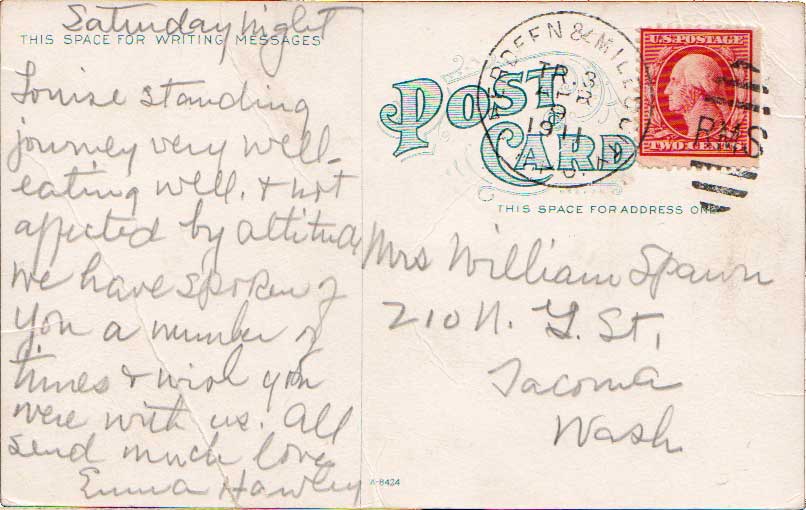 Saturday night
THIS SPACE FOR WRITING MESSAGES
Louise standing
journey very well-
eating well. & not
affected by altitude
We have spoken of
you a number of
times & wish you
were with us. All
send much love
Emma Hawley
POST CARD
ABERDEEN & MILES CY
TR.3
APR
9
1911
R.P.O.
U.S. POSTAGE
TWO CENTS
RMS
THIS SPACE FOR ADDRESS ONL
Mrs William Spawn
210 N. G. St,
Tacoma
Wash
A-8424